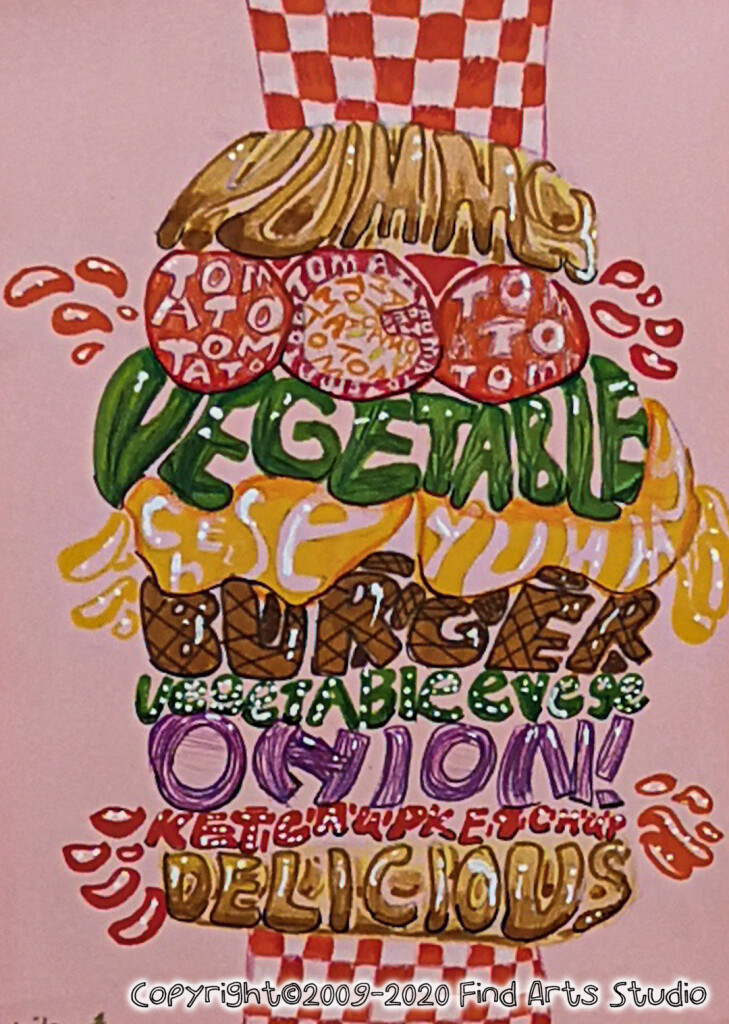 YUMMY
TOM TOMA TOM
ATO TO
TOM TOM
TATO
VEGETABLE
CHEESE YUMM
BURGER
VEGETABLE EVEGE
ONION!
KETCHUPKETCHUP
DELICIOUS
Copyright©2009-2020 Find Arts Studio